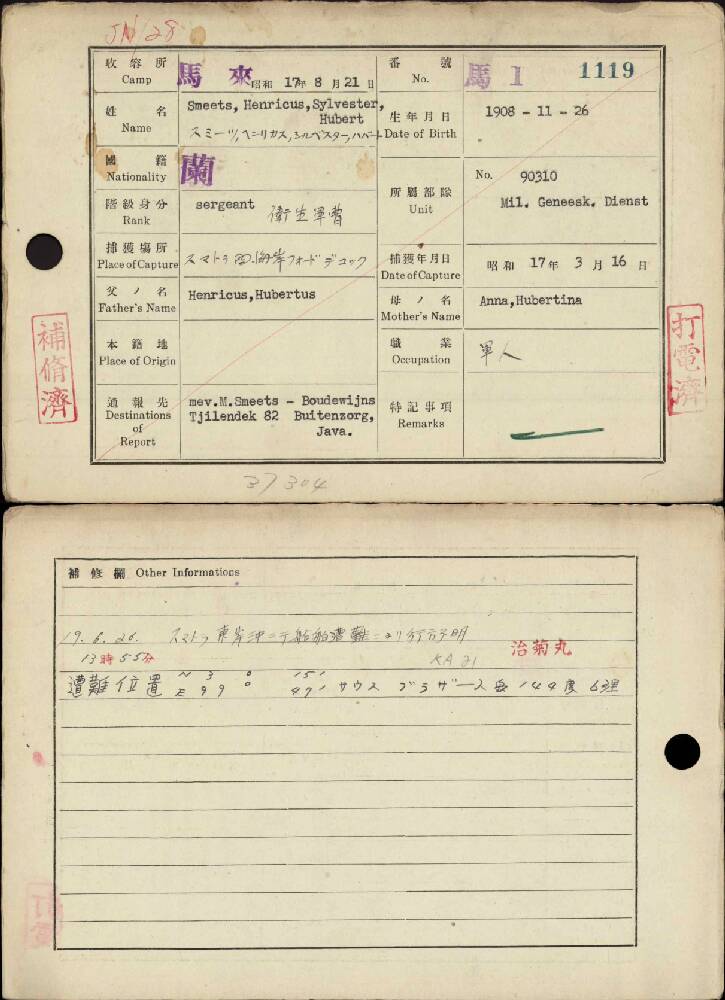 JN 28
收容所 Camp 馬來 昭和 17年 8月 21日
番號 No. 馬 1 1119
姓名 Name Smeets, Henricus,Sylvester, Hubert
スミーツ,ヘニリカス,シルベスター,ハバート
生年月日 Date of Birth 1908 - 11 - 26
國籍 Nationality 蘭
階級身分 Rank sergeant 衛生軍曹
所屬部隊 Unit No. 90310
Mil. Geneesk. Dienst
捕獲場所 Place of Capture スマトラ西海岸フォードデコック
捕獲年月日 Date of Capture 昭和 17年 3月 16日
父ノ名 Father's Name Henricus,Hubertus
母ノ名 Mother's Name Anna,Hubertina
本籍地 Place of Origin
職業 Occupation 軍人
通報先 Destinations of Report mev.M.Smeets - Boudewijns
Tjilendek 82 Buitenzorg,
Java.
特記事項 Remarks
補脩濟
打電濟
37304
補修欄 Other Informations
19.6.26. スマトラ東岸沖ニテ船舶遭難ニヨリ行方不明
13時55分 KA 21 治菊丸
遭難位置 N 3° 15' E 99° 47' サウスブラザース岳 144度 6浬